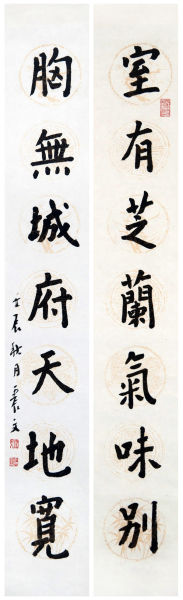 室有芝蘭氣味别
胸無城府天地寬
壬辰秋月